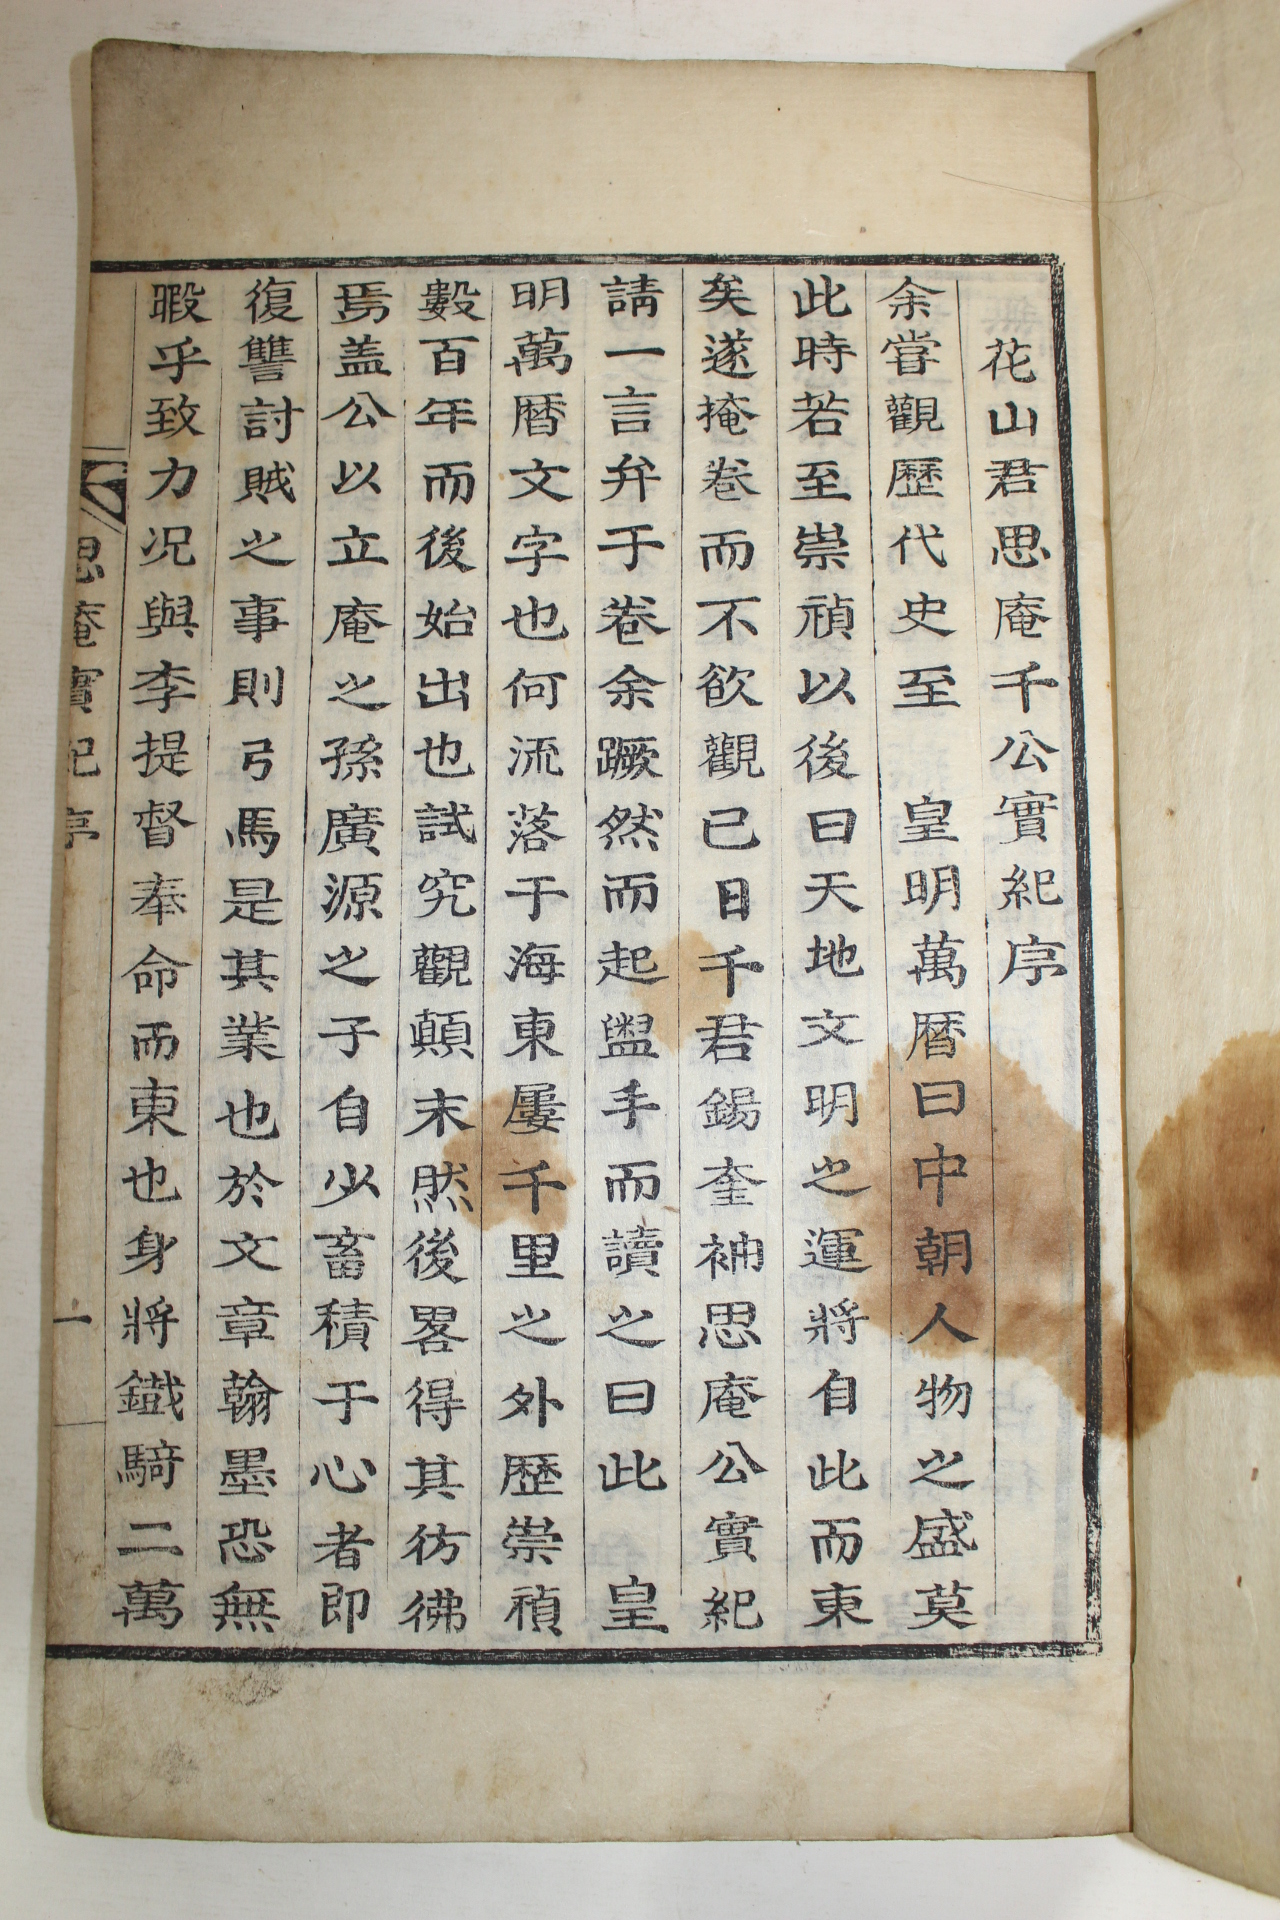 花山君思庵千公實紀序
余嘗觀歷代史至 皇明萬曆曰中朝人物之盛莫
此時若至崇禎以後曰天地文明之運將自此而東
矣遂掩卷而不欲觀已日千君錫奎袖思庵公實紀
請一言弁于卷余蹶然而起盥手而讀之曰此 皇
明萬曆文字也何流落于海東屢千里之外歷崇禎
數百年而後始出也試究觀顚末然後畧得其彷彿
焉盖公以立庵之孫廣源之子自少畜積于心者即
復讐討賊之事則弓馬是其業也於文章翰墨恐無
暇乎致力况與李提督奉命而東也身將鐵騎二萬
思庵實紀序
一